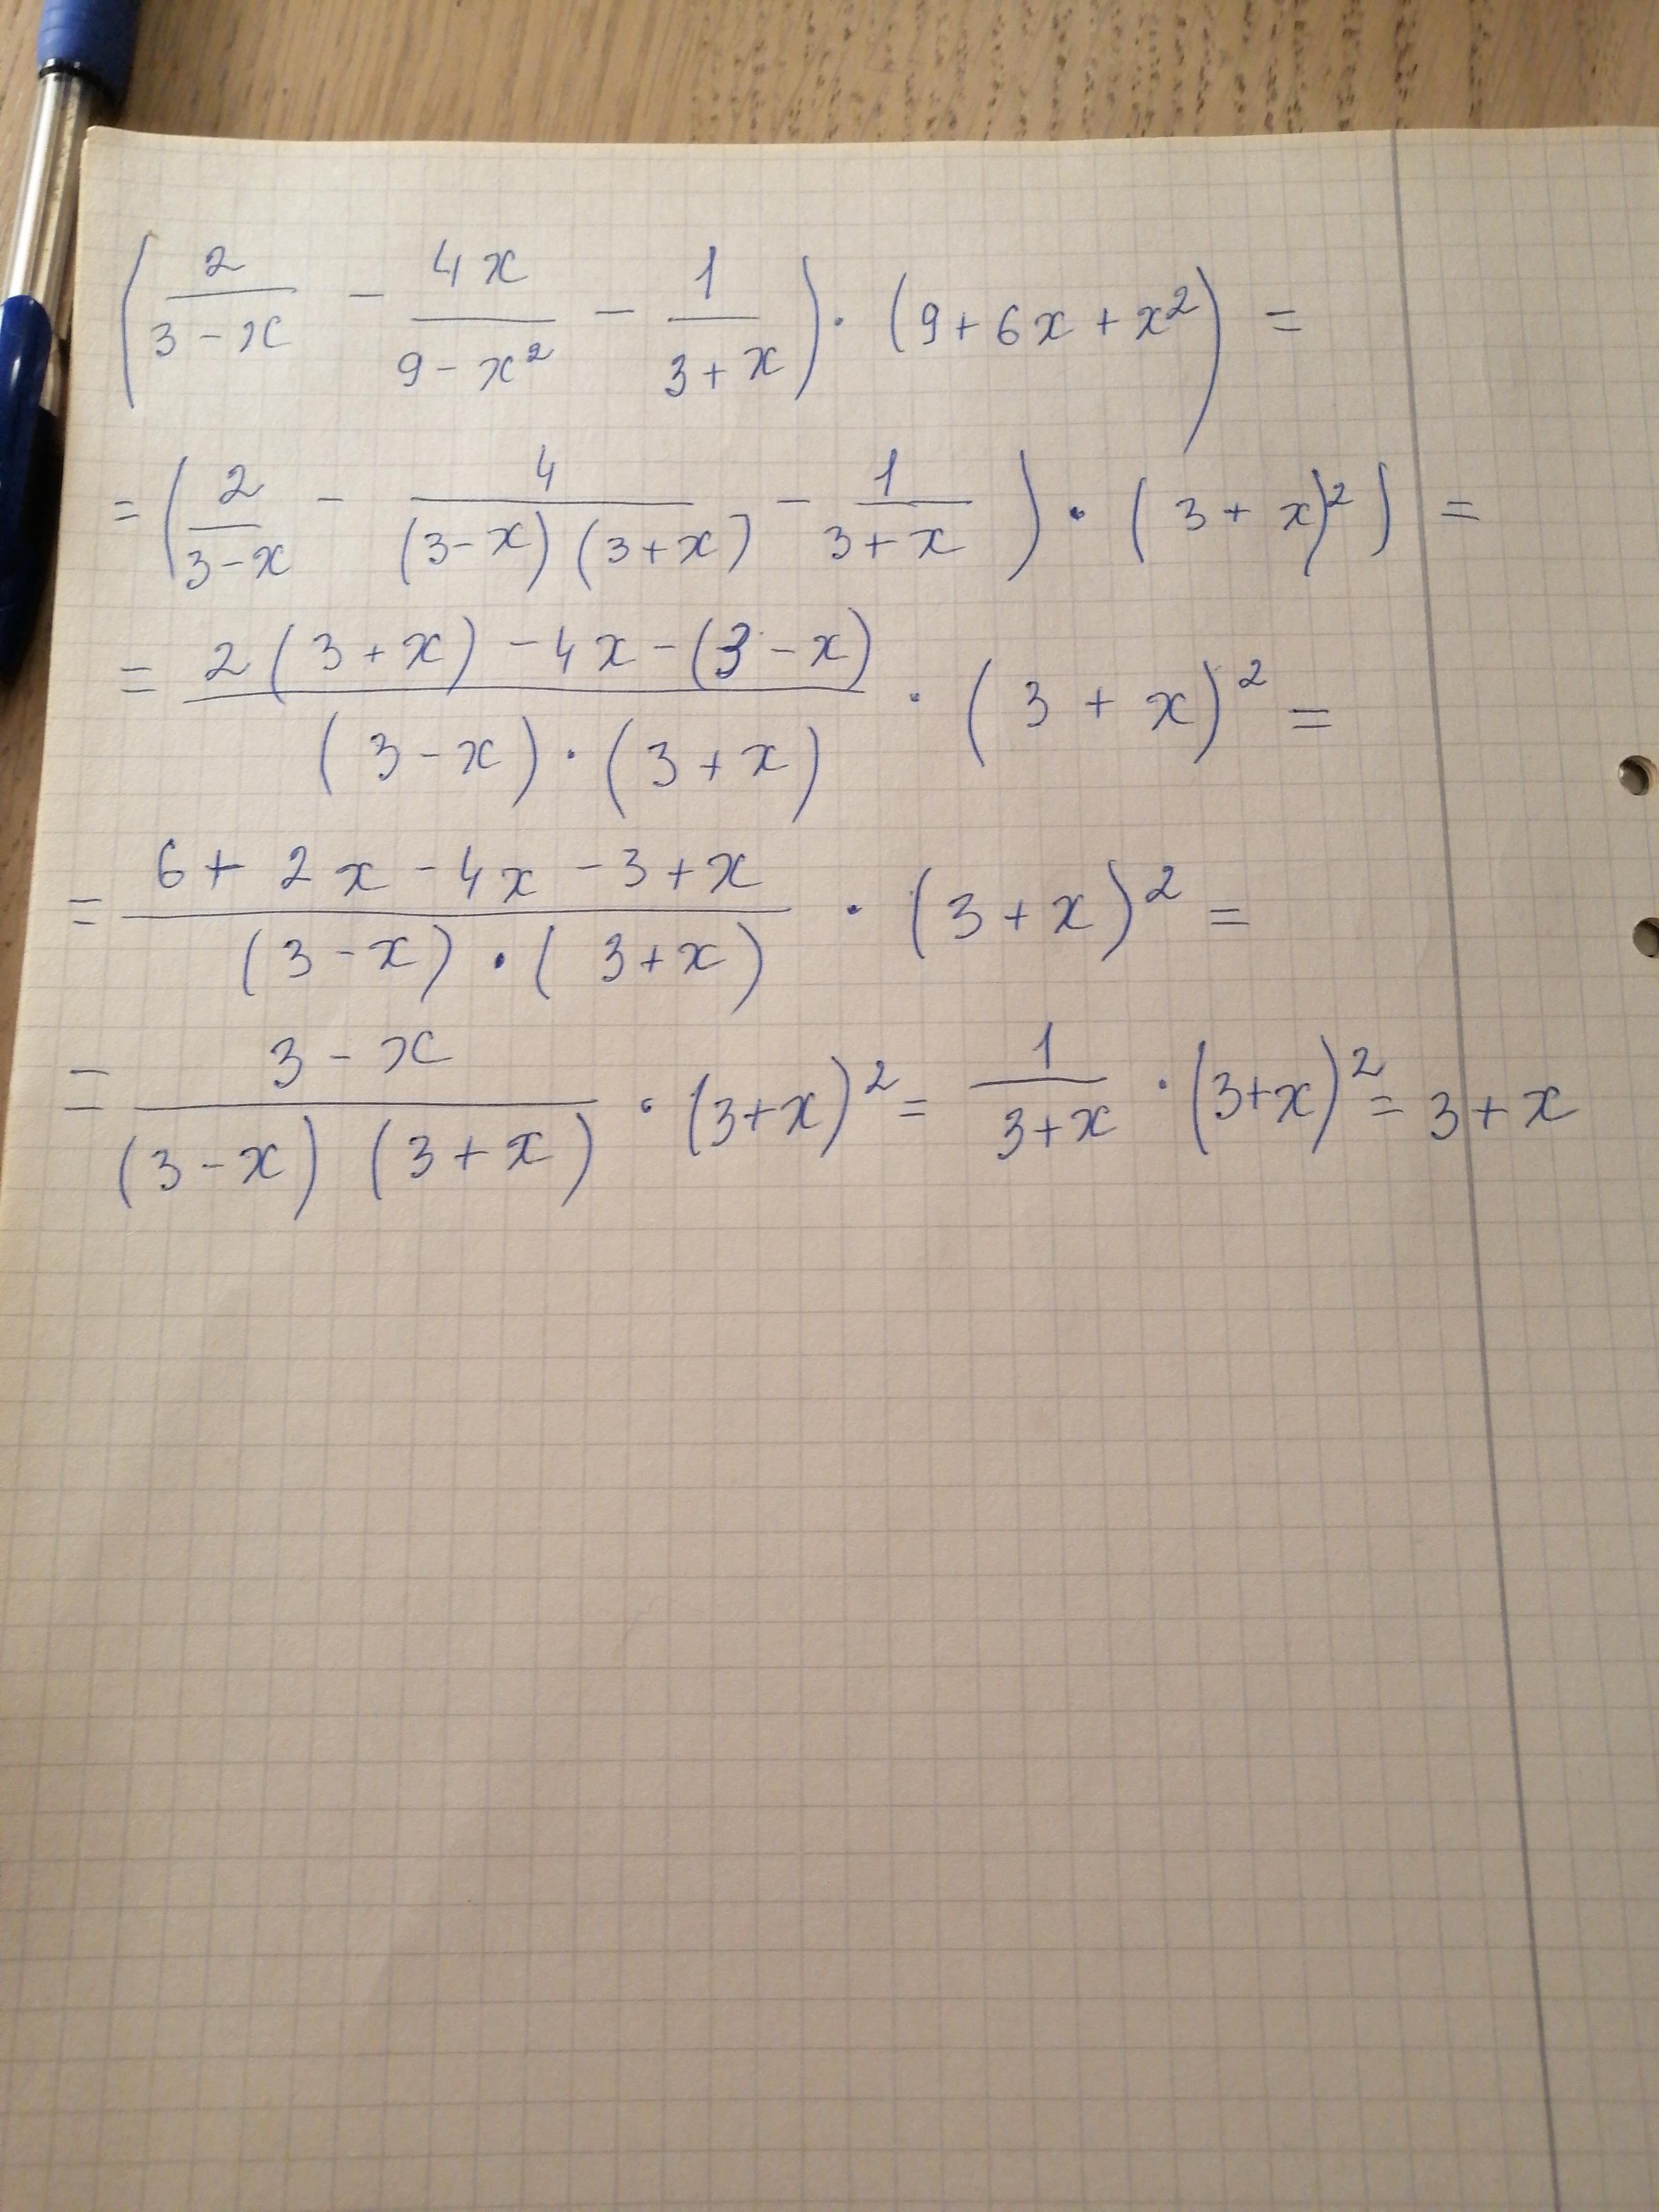 (2/(3-x) - 4x/(9-x²) - 1/(3+x)) · (9+6x+x²) =
= (2/(3-x) - 4/((3-x)(3+x)) - 1/(3+x)) · (3+x)²) =
= (2(3+x)-4x-(3-x))/((3-x)·(3+x)) · (3+x)² =
= (6+2x-4x-3+x)/((3-x)·(3+x)) · (3+x)² =
= (3-x)/((3-x)(3+x)) · (3+x)² = 1/(3+x) · (3+x)² = 3+x